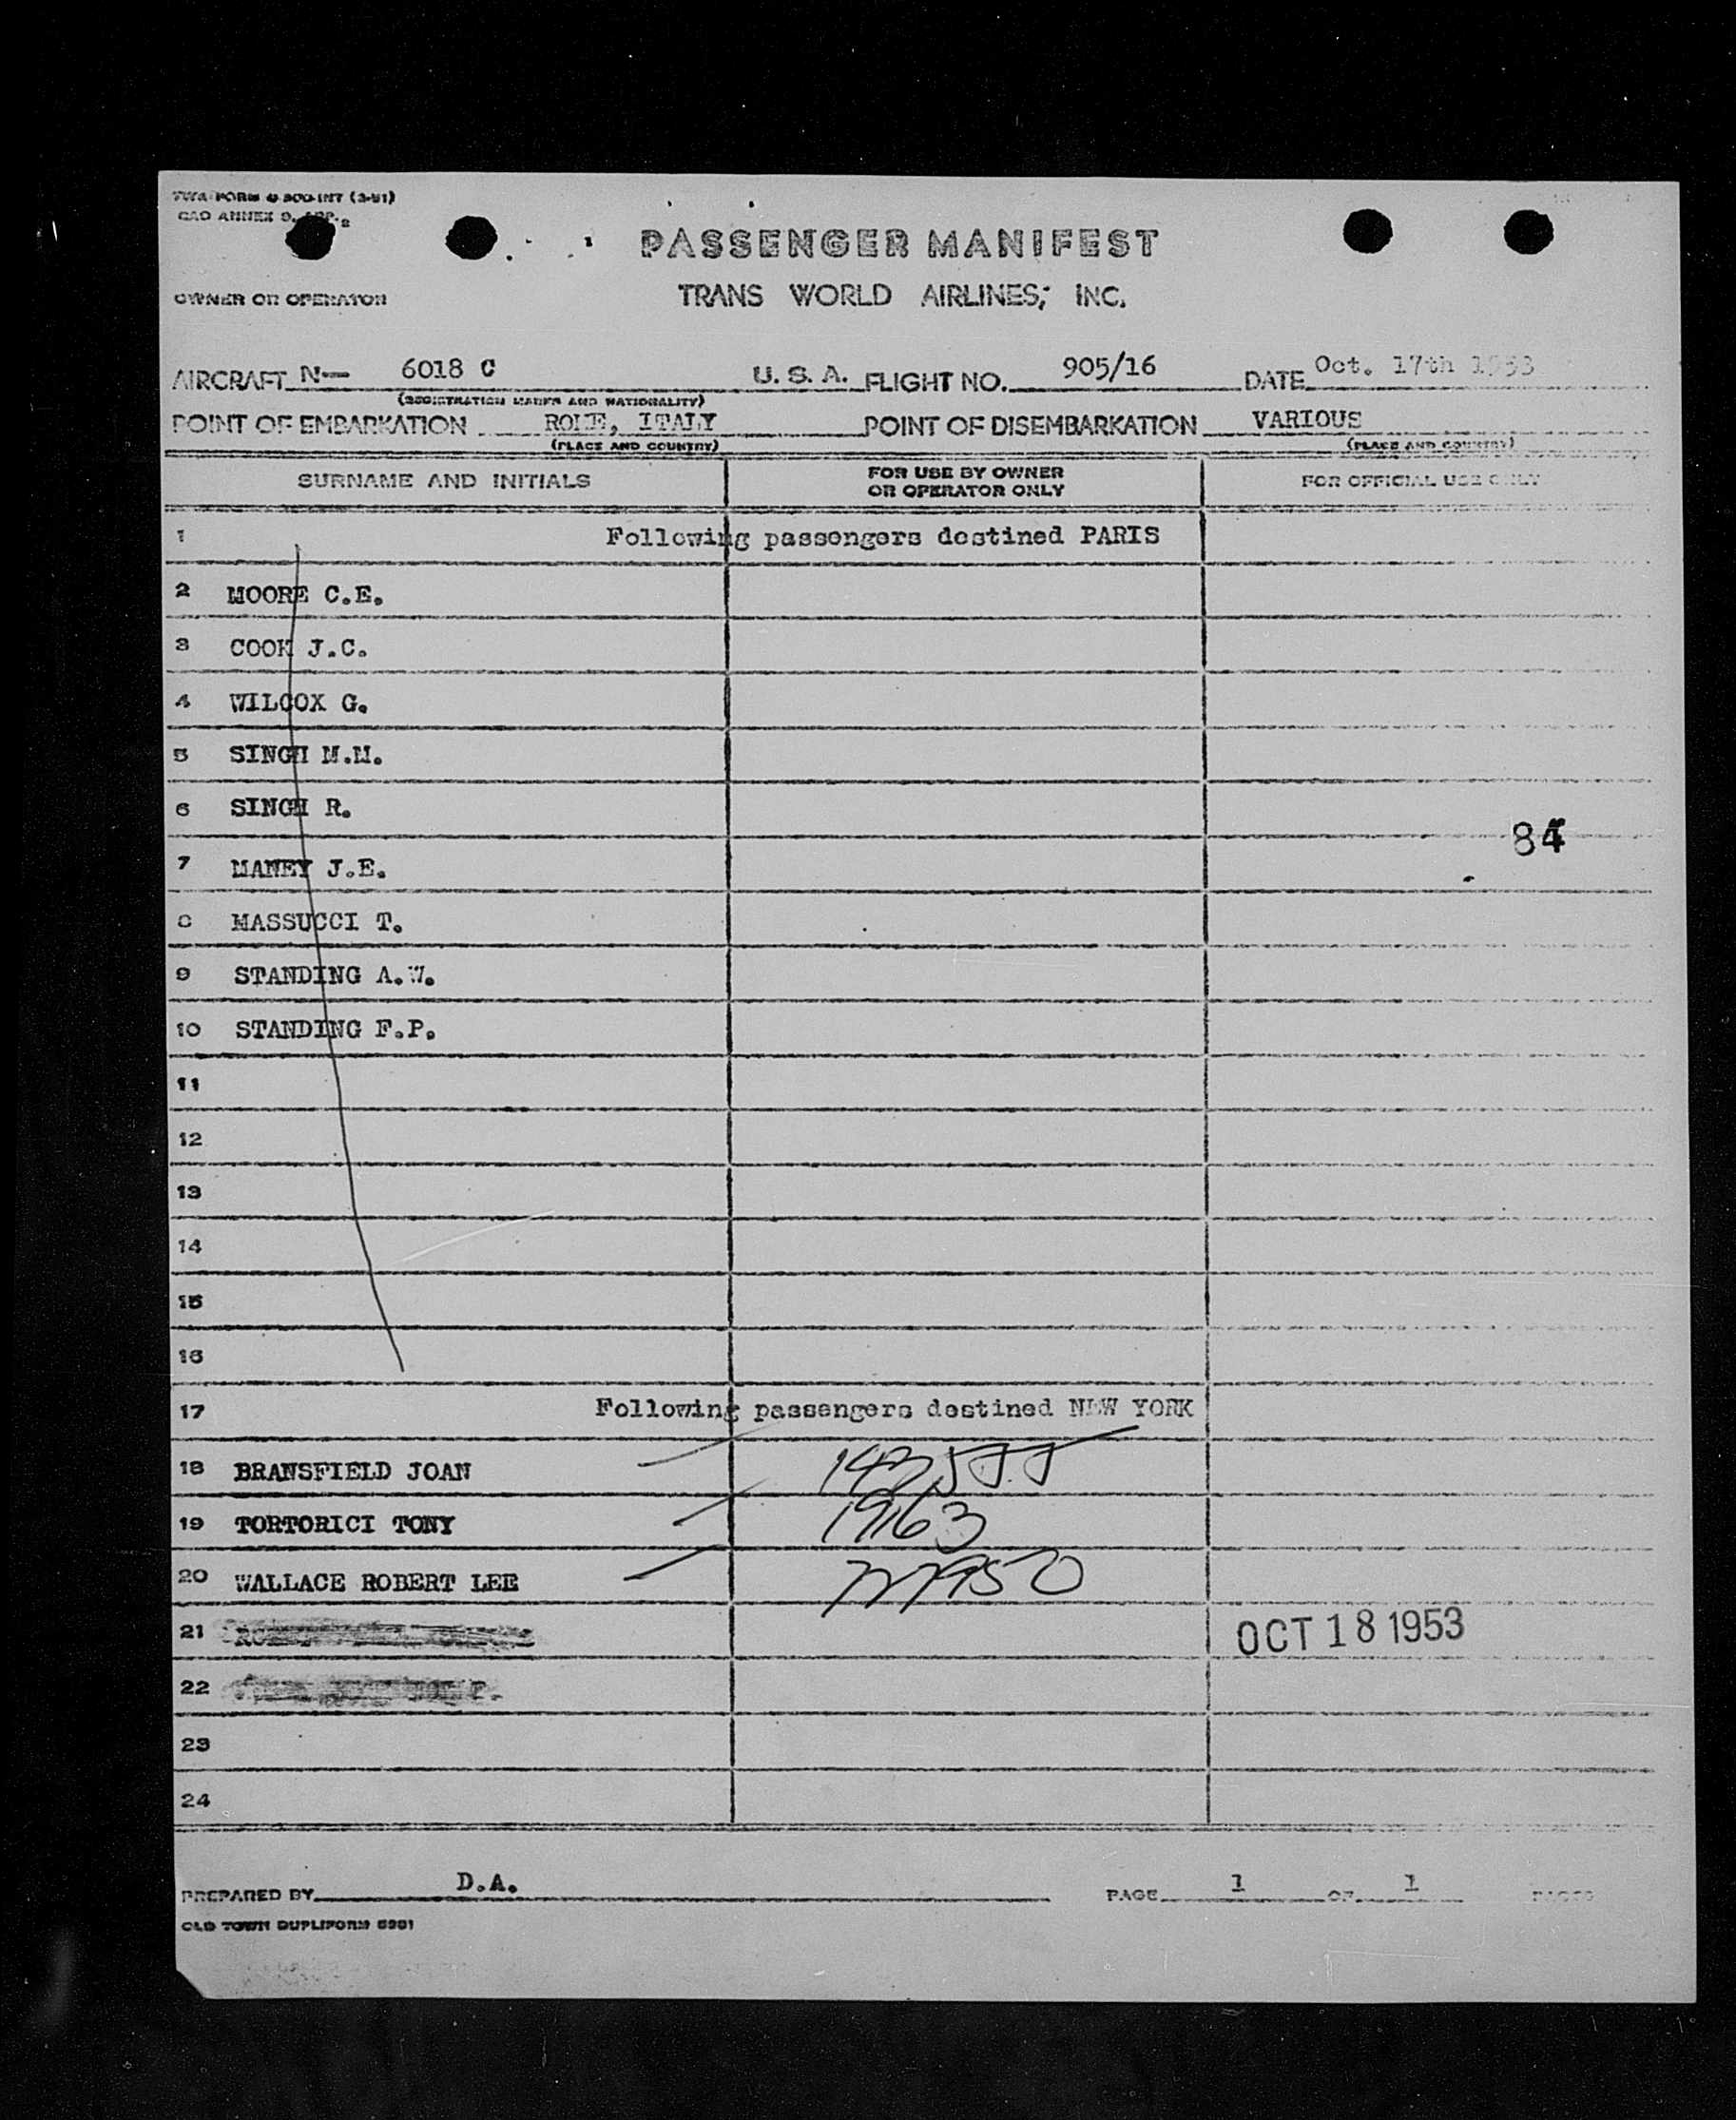 TWA FORM O 300-INT (3-51)
CAO ANNEX 9, APP. 2
PASSENGER MANIFEST
OWNER OR OPERATOR TRANS WORLD AIRLINES, INC.
AIRCRAFT N— 6018 C U. S. A. FLIGHT NO. 905/16 DATE Oct. 17th 1953
(REGISTRATION MARKS AND NATIONALITY)
POINT OF EMBARKATION ROME, ITALY POINT OF DISEMBARKATION VARIOUS
(PLACE AND COUNTRY) (PLACE AND COUNTRY)
SURNAME AND INITIALS FOR USE BY OWNER OR OPERATOR ONLY FOR OFFICIAL USE ONLY
1 Following passengers destined PARIS
2 MOORE C.E.
3 COOK J.C.
4 WILCOX G.
5 SINGH M.M.
6 SINGH R.
84
7 MANEY J.E.
8 MASSUCCI T.
9 STANDING A.W.
10 STANDING F.P.
11
12
13
14
15
16
17 Following passengers destined NEW YORK
18 BRANSFIELD JOAN
19 TORTORICI TONY 19163
20 WALLACE ROBERT LEE
21 OCT 18 1953
22
23
24
PREPARED BY D.A. PAGE 1 OF 1 PAGES
OLD TOWN DUPLIFORM 5981